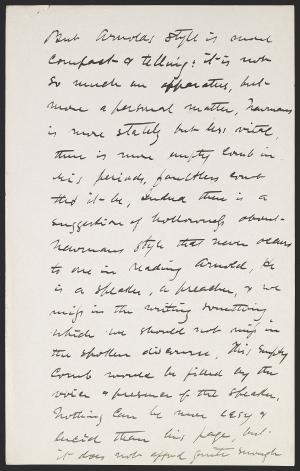 But Arnolds style is more
compact & telling; it is not
so much an apparatus, but
more a personal matter, Newmans
is more stately but less vital,
there is more empty comb in
his periods, faultless comb
tho it be, Indeed there is a
suggestion of hollowness about
Newmans style that never occurs
to one in reading Arnold, He
is a speaker, a preacher, & we
miss in the writing something
which we should not miss in
the spoken discourse, This empty
comb would be filled by the
voice & presence of the speaker,
Nothing can be more easy &
lucid than his page, but
it does not afford quite enough